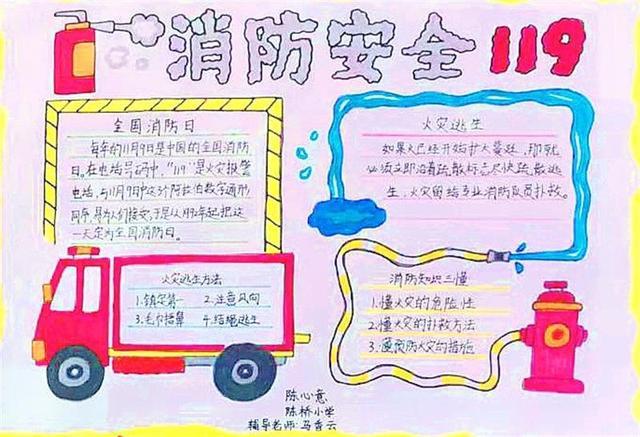 消防安全 119
全国消防日
每年的11月9日是中国的全国消防
日。在电话号码中，"119"是火灾报警
电话，与11月9日中这3个阿拉伯数字
一天定为全国消防日。
火灾逃生
如果火已经开始扩大蔓延，那就
必须立即沿着疏散标志尽快疏散逃
生，火灾留给专业消防队员扑救。
火灾逃生方法
1.镇定第一 2.注意风向
3.毛巾捂鼻 4.结绳逃生
消防知识三懂
1.懂火灾的危险性
2.懂火灾的扑救方法
3.懂预防火灾的措施
陈心意
陈桥小学
辅导老师:马香云